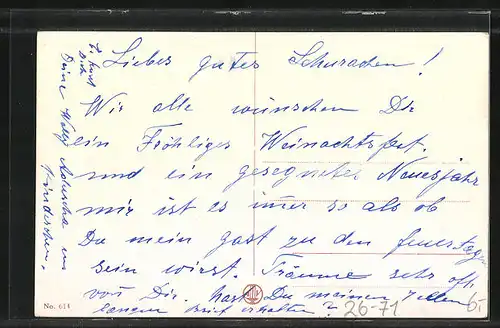 Liebes gutes Schurachen!
Wir alle wünschen Dir
ein Fröhliges Weinachtsfest.
und ein gesegnetes Neuesjahr
mir ist es imer so als ob
Du mein gast zu den feuertage
sein wirst. Träume sehr oft
von Dir. hast Du meinen
langen Brief erhalten?
Deine Willy
Kinderchen.
No. 614
26-71
6.-